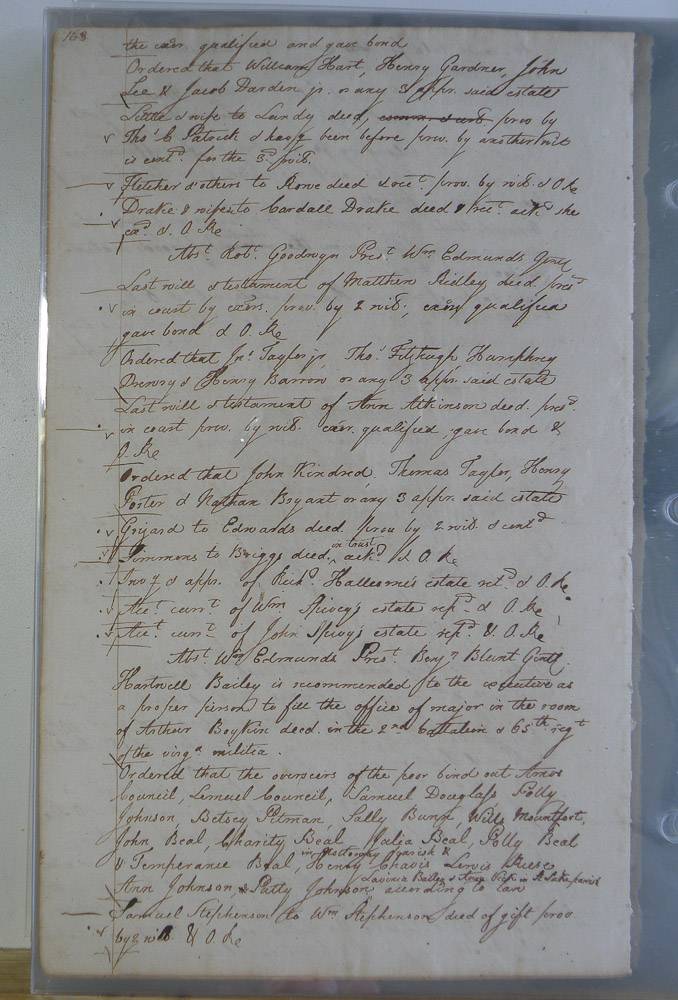 168
the exōr. qualified and gave bond
Ordered that William Hart, Henry Gardner, John
Lee & Jacob Darden jr. or any 3 appr. said estate
Little & wife to Lundy deed, prov by
Thos. C Patrick & havg been before prov. by another wit
is contd. for the 3d. wit.
Fletcher & others to Rowe deed & rect. prov. by wits. & O Re
Drake & wife to Cardall Drake deed & rect. ackd she
exd. & O. Re
Abst. Robt. Goodwyn Prest. Wm. Edmunds Gentl
Last will & testament of Matthew Ridley deed. presd
in court by exōrs. prov. by 2 wits, exōrs qualified
gave bond & O. Re
Ordered that Jno. Taylor jr, Thos. Fitzhugh Humphrey
Drewry & Henry Barrow or any 3 appr. said estate
Last will & testament of Ann Atkinson decd. presd.
in court prov. by wits. exōr. qualified, gave bond &
O. Re
Ordered that John Kindred, Thomas Taylor, Henry
Porter & Nathan Bryant or any 3 appr. said estate
Grizard to Edwards deed prov by 2 wits. & contd
Simmons to Briggs deed, in trust ackd. & O. Re
Invy & appr. of Richd. estate retd. & O. Re
Acct. currt. of Wm Spivey's estate repd. & O. Re
Acct. currt. of John Spivy's estate repd. & O. Re
Abst. Wm. Edmunds Prest. Benjn. Blunt Gentl.
Hartwell Bailey is recommended to the executive as
a proper person to fill the office of major in the room
of Arthur Boykin decd. in the 2nd battalion & 65th regt
of the virga. militia.
Ordered that the overseers of the poor bind out Amos
Council, Lemuel Council, Samuel Douglass Polly
Johnson, Betsey Pitman, Sally Bunn, Wills Mountfort,
John Beal, Charity Beal Julia Beal, Polly Beal
& Temperance Beal, in Nottoway parish & Henry Chavis Lewis
Ann Johnson, & Patty Johnson Lavinia Bailey & in St Lukes parish according to law
Samuel Stephenson to Wm Stephenson deed of gift prov.
by 2 wits. & O. Re